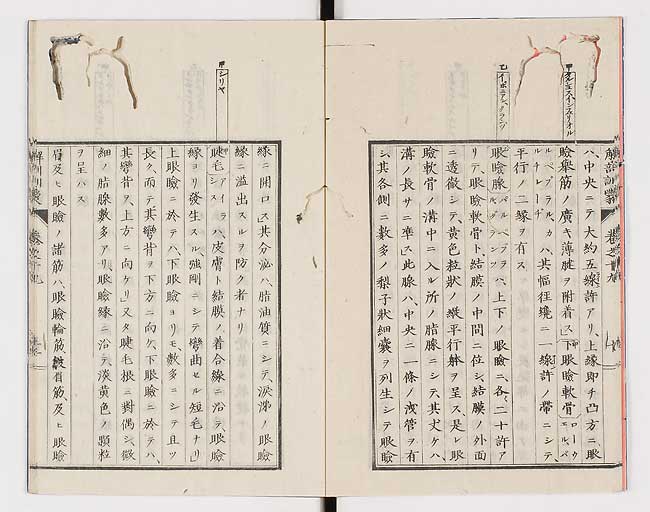 ハ、中央ニテ大約五線許アリ、上縁即チ凸方ニ、眼
瞼擧筋ノ廣キ薄腱ヲ附着ス、下眼瞼軟骨
ハ、其幅徑纔ニ一線許ノ帶ニシテ、
平行ノ二縁ヲ有ス
眼瞼腺 ハ、上下ノ眼瞼ニ、各二十許ア
リテ、眼瞼軟骨ト結膜ノ中間ニ位シ、結膜ノ外面
ニ透徹シテ、黄色粒狀ノ縱平行線ヲ呈ス、是レ眼
瞼軟骨ノ溝中ニ入ル所ノ脂腺ニシテ、其丈ケハ、
溝ノ長サニ準ス、此腺ハ、中央ニ一條ノ洩管ヲ有
シ、其各側ニ數多ノ梨子狀細嚢ヲ列生シテ眼瞼
シリヤ
縁ニ開口ス、其分泌ハ、脂油質ニシテ、涙涕ノ眼瞼
縁ニ溢出スルヲ防ク者ナリ
睫毛 ハ、皮膚ト結膜ノ着合線ニ沿テ、眼瞼
縁ヨリ發生スル、強剛ニシテ彎曲セル短毛ナリ、
上眼瞼ニ於テハ、下眼瞼ヨリモ、數多ニシテ且ツ
長ク、而テ其彎背ヲ下方ニ向ケ、下眼瞼ニ於テハ、
其彎背ヲ、上方ニ向ケリ、又タ睫毛根ニ對偶シ、微
細ノ脂腺數多アリ、眼瞼縁ニ沿テ、淡黄色ノ顆粒
ヲ呈ハス
眉及ヒ眼瞼ノ諸筋ハ、眼瞼輪筋皺眉筋及ヒ眼瞼